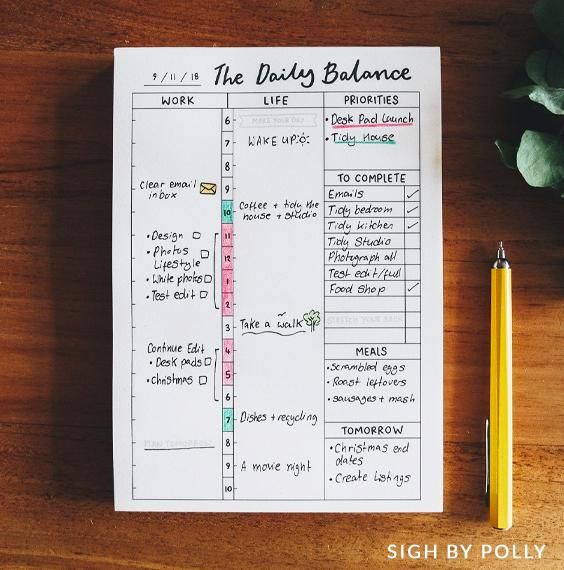 9 / 11 / 18 The Daily Balance
WORK
LIFE
PRIORITIES
6
7
8
9
10
11
12
1
2
3
4
5
6
7
8
9
10
Clear email
inbox
• Design
• Photos
Lifestyle
• White photos
• Test edit
Continue Edit
• Desk pads
• Christmas
PLAN TOMORROW
MAKE YOUR BED
WAKE UP
Coffee + tidy the
house + studio
Take a walk
Dishes + recycling
A movie night
• Desk Pad Launch
• Tidy House
TO COMPLETE
Emails
Tidy bedroom
Tidy kitchen
Tidy Studio
Photograph all
Test edit/full
Food shop
STRETCH YOUR BACK
MEALS
• Scrambled eggs
• Roast leftovers
• sausages + mash
TOMORROW
• Christmas end
dates
• Create listings
SIGH BY POLLY